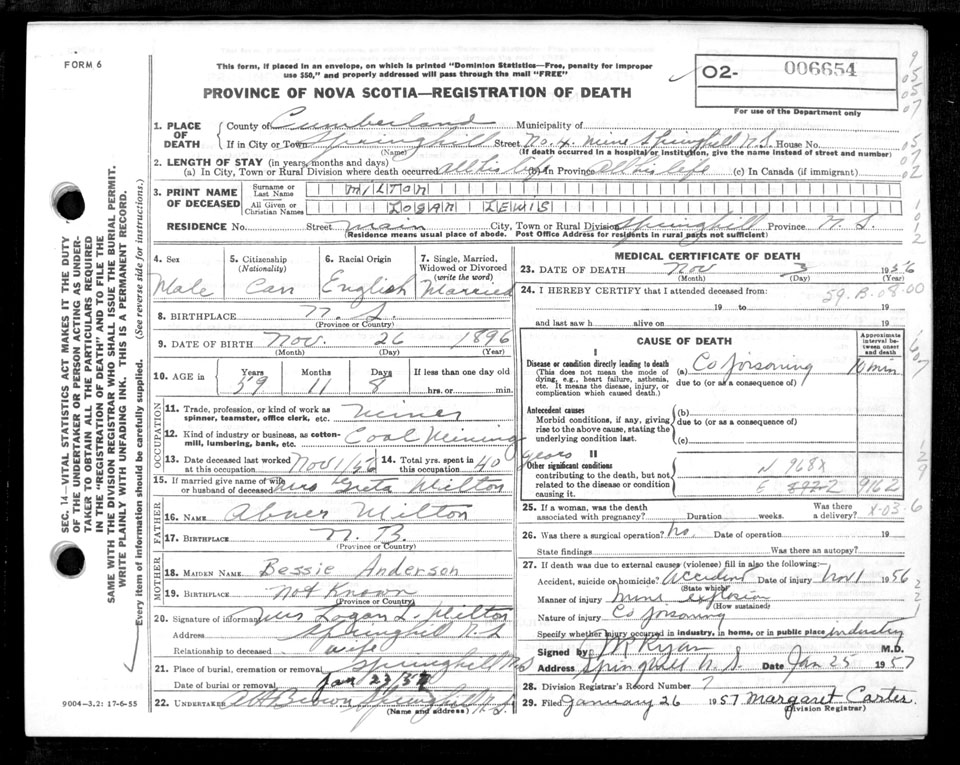 FORM 6
This form, if placed in an envelope, on which is printed "Dominion Statistics—Free, penalty for improper
use $50," and properly addressed will pass through the mail "FREE"
PROVINCE OF NOVA SCOTIA—REGISTRATION OF DEATH
O2- 006654
For use of the Department only
1. PLACE OF DEATH
County of Cumberland Municipality of
If in City or Town Springhill Street No. 4 mine Springhill N.S. House No.
(Name) (If death occurred in a hospital or institution, give the name instead of street and number)
2. LENGTH OF STAY (in years, months and days)
(a) In City, Town or Rural Division where death occurred All his life (b) In Province All his life (c) In Canada (if immigrant)
3. PRINT NAME OF DECEASED
Surname or Last Name MILTON
All Given or Christian Names LOGAN LEWIS
RESIDENCE No. Street main City, Town or Rural Division Springhill Province N. S.
(Residence means usual place of abode. Post Office Address for residents in rural parts not sufficient)
4. Sex Male
5. Citizenship (Nationality) Can
6. Racial Origin English
7. Single, Married, Widowed or Divorced (write the word) Married
8. BIRTHPLACE N. S.
(Province or Country)
9. DATE OF BIRTH Nov. 26 1896
(Month) (Day) (Year)
10. AGE in Years 59 Months 11 Days 8 If less than one day old
hrs. or min.
OCCUPATION
11. Trade, profession, or kind of work as spinner, teamster, office clerk, etc. miner
12. Kind of industry or business, as cotton-mill, lumbering, bank, etc. Coal Mining
13. Date deceased last worked at this occupation Nov 1/56
14. Total yrs. spent in this occupation 40 years
15. If married give name of wife or husband of deceased Mrs Greta Milton
FATHER
16. NAME Abner Milton
17. BIRTHPLACE N. B.
(Province or Country)
MOTHER
18. MAIDEN NAME Bessie Anderson
19. BIRTHPLACE Not Known
(Province or Country)
20. Signature of informant Mrs Logan L. Milton
Address Springhill N.S
Relationship to deceased wife
21. Place of burial, cremation or removal Springhill NS
Date of burial or removal Jan 23/57
22. UNDERTAKER A H Brown Springhill N.S.
(Name and address)
MEDICAL CERTIFICATE OF DEATH
23. DATE OF DEATH Nov 3 1956
(Month) (Day)
24. I HEREBY CERTIFY that I attended deceased from: 59.B.08.00
19 to 19
and last saw h alive on 19
CAUSE OF DEATH
Approximate interval between onset and death
I
Disease or condition directly leading to death
(This does not mean the mode of dying, e.g., heart failure, asthenia, etc. It means the disease, injury, or complication which caused death.)
(a) Co poisoning 10 min
due to (or as a consequence of)
Antecedent causes
Morbid conditions, if any, giving rise to the above cause, stating the underlying condition last.
(b)
due to (or as a consequence of)
(c)
II
Other significant conditions
contributing to the death, but not related to the disease or condition causing it.
N 968X
E 916.2
25. If a woman, was the death associated with pregnancy? Duration weeks. Was there a delivery? X-03
26. Was there a surgical operation? No. Date of operation 19
State findings Was there an autopsy?
27. If death was due to external causes (violence) fill in also the following:—
Accident, suicide or homicide? Accident Date of injury Nov 1 1956
(State which)
Manner of injury mine explosion
(How sustained)
Nature of injury Co poisoning
Specify whether injury occurred in industry, in home, or in public place industry
Signed by Ryan M.D.
Address Springhill N. S. Date Jan 25 1957
28. Division Registrar's Record Number 7
29. Filed January 26 1957 Margaret Carter
(Division Registrar)
9004—3.2: 17-6-55
SEC. 14—VITAL STATISTICS ACT MAKES IT THE DUTY
OF THE UNDERTAKER OR PERSON ACTING AS UNDER-
TAKER TO OBTAIN ALL THE PARTICULARS REQUIRED
IN THE "REGISTRATION OF DEATH" AND TO FILE THE
SAME WITH THE DIVISION REGISTRAR WHO SHALL ISSUE THE BURIAL PERMIT.
WRITE PLAINLY WITH UNFADING INK. THIS IS A PERMANENT RECORD.
Every item of information should be carefully supplied. (See reverse side for instructions.)